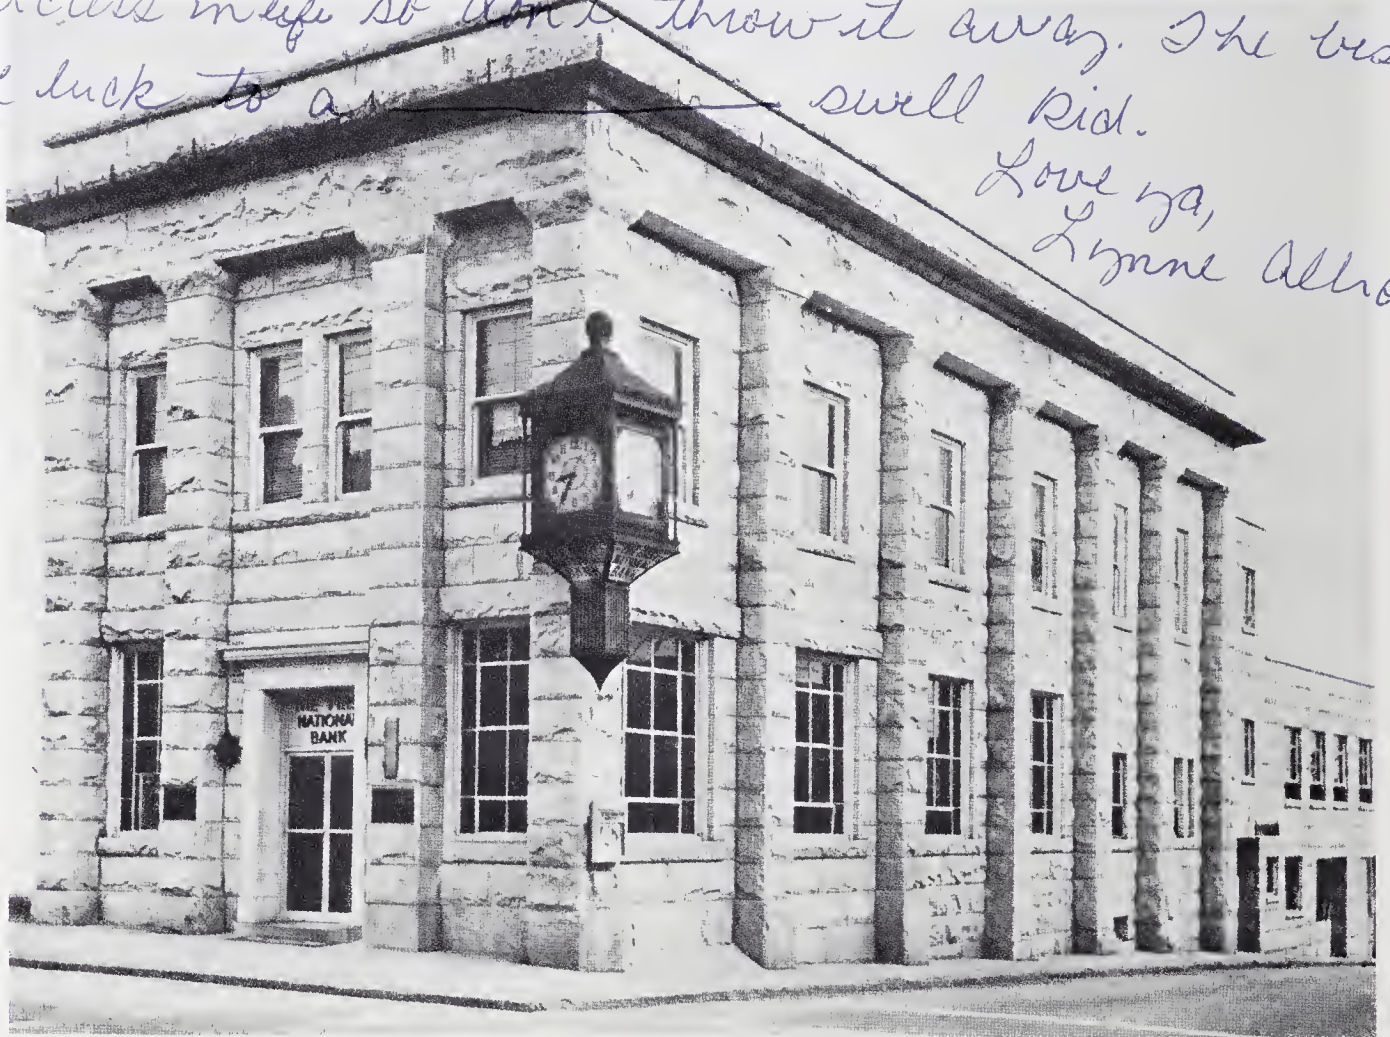 in life so don't throw it away. The
luck to a swell kid.
Love ya,
Lynne
NATIONA
BANK